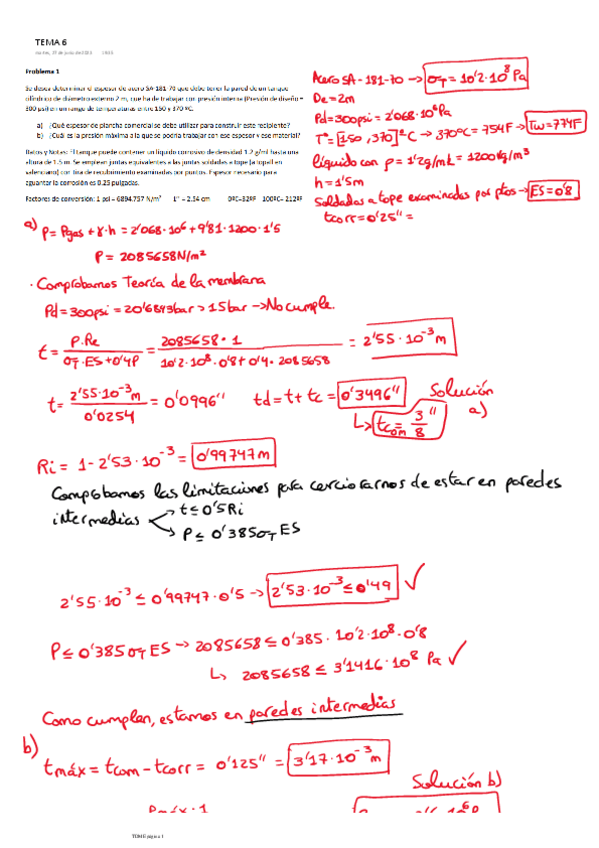 TEMA 6
Problema 1
Se desea determinar el espesor de acero SA-181-70 que debe tener la pared de un tanque
cilíndrico de diámetro externo 2 m, que ha de trabajar con presión interna (Presión de diseño =
300 psi) en un rango de temperaturas entre 150 y 370 ºC.
a) ¿Qué espesor de plancha comercial se debe utilizar para construir este recipiente?
b) ¿Cuál es la presión máxima a la que se podría trabajar con ese espesor y ese material?
Datos y Notas: El tanque puede contener un líquido corrosivo de densidad 1.2 g/ml hasta una
altura de 1.5 m. Se emplean juntas equivalentes a las juntas soldadas a tope (a topall en
valenciano) con tira de recubrimiento examinadas por puntos. Espesor necesario para
aguantar la corrosión es 0.25 pulgadas.
Factores de conversión: 1 psi = 6894.757 N/m² 1'' = 2.54 cm 0ºC=32ºF 100ºC= 212ºF
Acero SA-181-70 → σT = 10'2·10⁸ Pa
De = 2m
Pd = 300psi = 2'068·10⁶ Pa
Tª = [150, 370]ºC → 370ºC = 754F → Tw = 774F
líquido con ρ = 1'2g/mL = 1200kg/m³
h = 1'5m
Soldadas a tope examinadas por ptos → ES = 0'8
tcorr = 0'25'' =
a) P = Pgas + γ·h = 2'068·10⁶ + 9'81·1200·1'5
P = 2085658 N/m²
· Comprobamos Teoría de la membrana
Pd = 300psi = 20'6843bar > 15bar → No cumple.
t = P·Re / σT·ES+0'4P = 2085658·1 / 10'2·10⁸·0'8+0'4·2085658 = 2'55·10⁻³ m
t = 2'55·10⁻³m / 0'0254 = 0'0996'' td = t + tc = 0'3496'' Solución a)
↳ tcom = 3/8''
Ri = 1 - 2'53·10⁻³ = 0'99747 m
Comprobamos las limitaciones para cerciorarnos de estar en paredes
intermedias → t ≤ 0'5Ri
→ P ≤ 0'385σT ES
2'55·10⁻³ ≤ 0'99747·0'5 → 2'53·10⁻³ ≤ 0'49 ✓
P ≤ 0'385σT ES → 2085658 ≤ 0'385·10'2·10⁸·0'8
↳ 2085658 ≤ 3'1416·10⁸ Pa ✓
Como cumplen, estamos en paredes intermedias
b) tmáx = tcom - tcorr = 0'125'' = 3'17·10⁻³ m
Solución b)
Pmáx·1